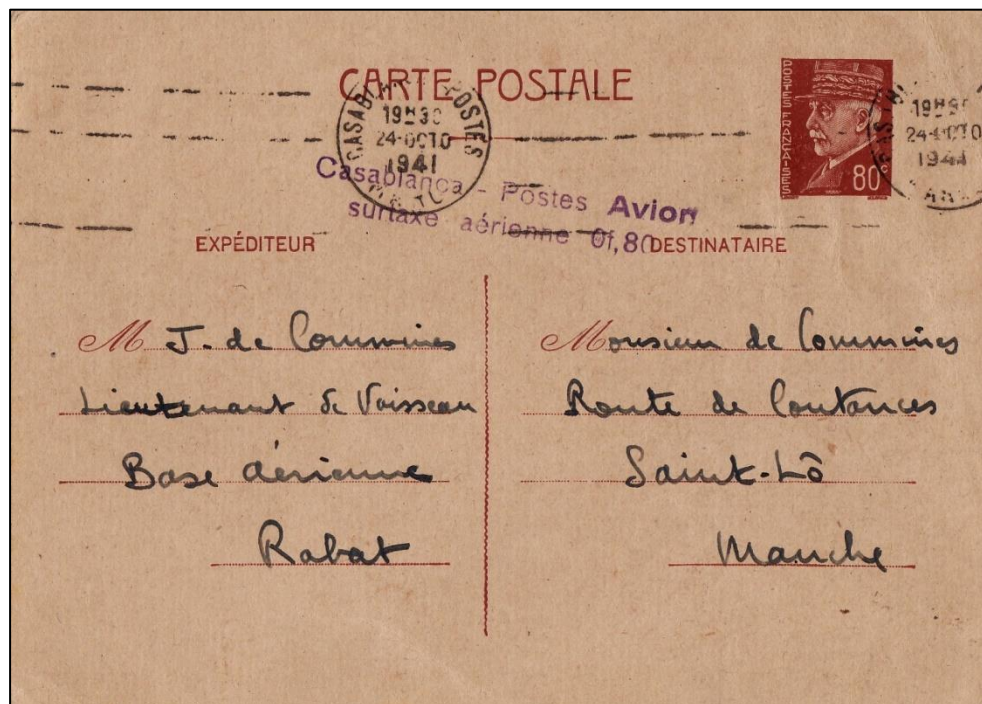 CARTE POSTALE
POSTES FRANÇAISES
80c
CASABLANCA POSTES
19H30
24-OCTO
1941
19H30
24-OCTO
1941
Casablanca - Postes Avion
surtaxe aérienne 0f,80
EXPÉDITEUR
M J. de Commines
Lieutenant de Vaisseau
Base aérienne
Rabat
DESTINATAIRE
Monsieur de Commines
Route de Coutances
Saint-Lô
Manche